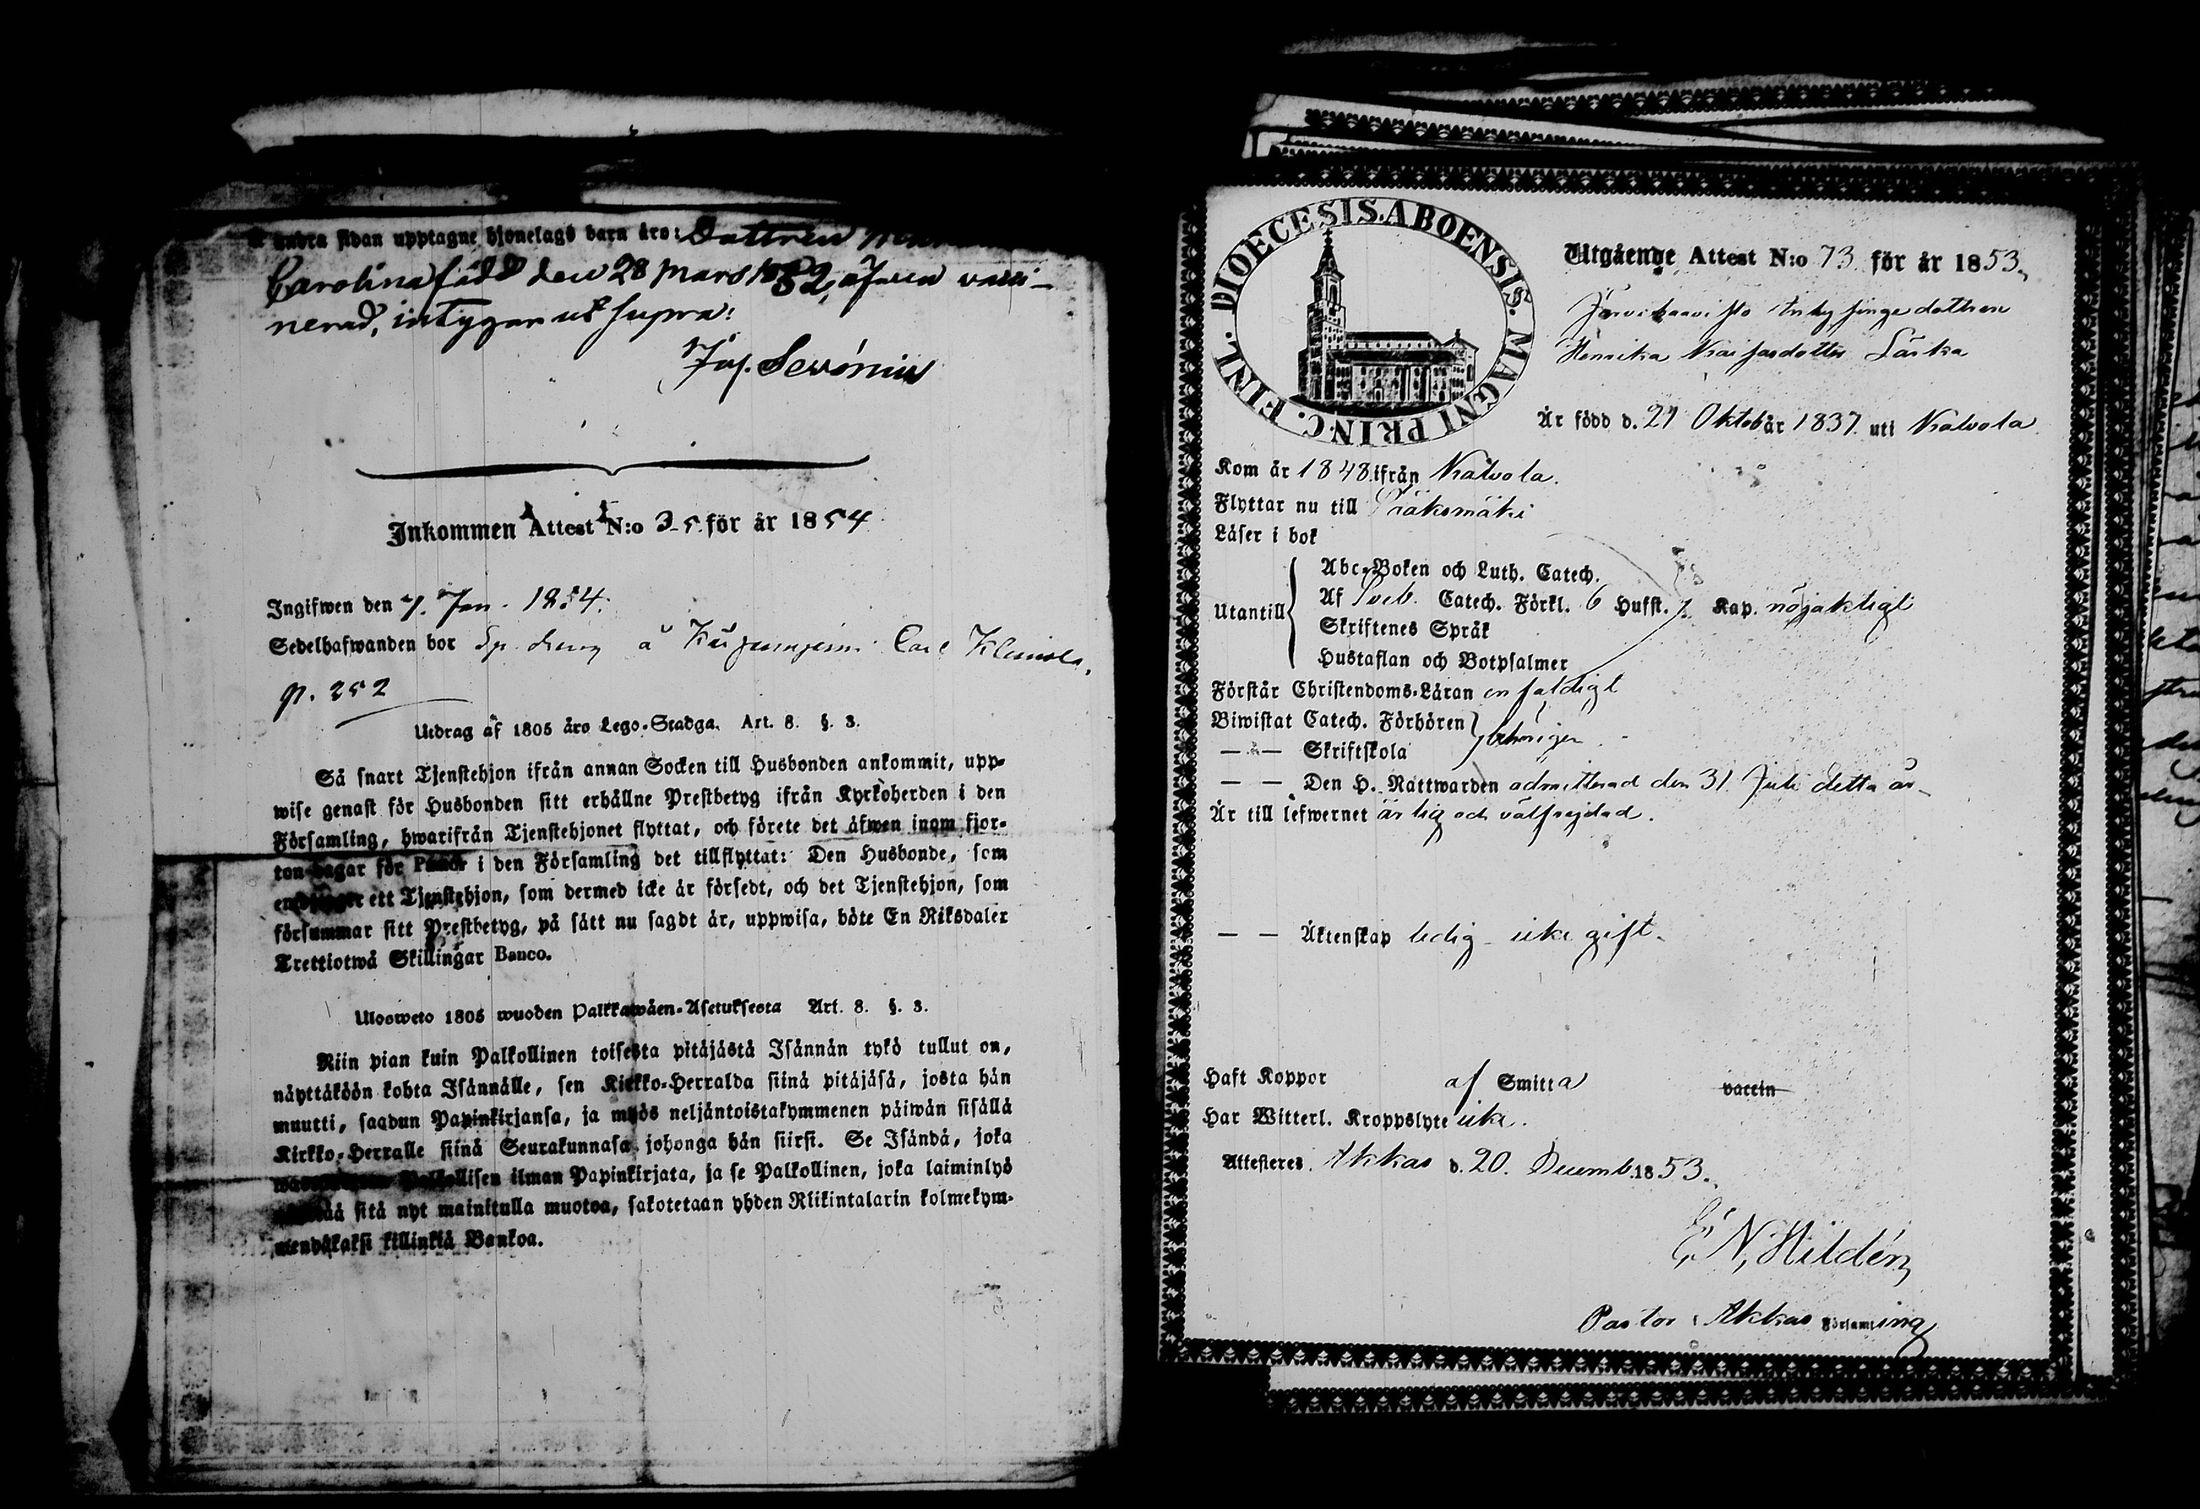 andra sidan upptagne hjonelags barn äro: Dottren
Carolina född den 28 Mars 1852, äfven vacci-
nerad, intygar ut supra:
Jos. Serónius
Inkommen Attest N:o 35 för år 1854
Ingifwen den 7. Jan. 1854.
Sedelhafwanden bor å Carl
p. 252
Utdrag af 1805 års Lego-Stadga. Art. 8. §. 3.
Så snart Tjenstehjon ifrån annan Socken till Husbonden ankommit, upp-
wise genast för Husbonden sitt erhållne Prestbetyg ifrån Kyrkoherden i den
Församling, hwarifrån Tjenstehjonet flyttat, och förete det äfwen inom fjor-
ton dagar för Pastor i den Församling det tillflyttat: Den Husbonde, som
ett Tjenstehjon, som dermed icke är försedt, och det Tjenstehjon, som
försummar sitt Prestbetyg, på sätt nu sagdt är, uppwisa, böte En Riksdaler
Trettiotwå Skillingar Banco.
Ulosweto 1805 wuoden Palkkawäen-Asetuksesta Art. 8. §. 3.
Niin pian kuin Palkollinen toisesta pitäjästä Isännän tykö tullut on,
näyttäköön kohta Isännälle, sen Kirkko-Herralda siinä pitäjäsä, josta hän
muutti, saadun Papinkirjansa, ja myös neljäntoistakymmenen päiwän sisällä
Kirkko-Herralle siinä Seurakunnasa johonga hän siirsi. Se Isändä, joka
Palkollisen ilman Papinkirjata, ja se Palkollinen, joka laiminlyö
sitä nyt mainitulla muotoa, sakotetaan yhden Riikintalarin kolmekym-
mendäkaksi killinkiä Bankoa.
DIOECESIS. ABOENSIS. MAGNI PRINC. FINL.
Utgående Attest N:o 73 för år 1853.
Järvikaavisto Inhysingedottren
Henrika
Är född d. 21 Oktob år 1837 uti Kalvola
Kom år 1848 ifrån Kalvola.
Flyttar nu till Sääksmäki
Läser i bok
Utantill
Abc-Boken och Luth. Catech.
Af Sveb. Catech. Förkl. 6 Hufst. 7. Kap. nöjaktigt
Skriftenes Språk
Hustaflan och Botpsalmer
Förstår Christendoms-Läran enfaldigt
Biwistat Catech. Förhören
— — Skriftskola behörigen
— — Den H. Nattwarden admitterad den 31 Juli detta år
Är till lefwernet ärlig och välfrejdad.
— — Äktenskap ledig - icke gift.
Haft Koppor af Smitta vaccin
Har Witterl. Kroppslyte icke.
Attesteres. Akkas d. 20. Decemb. 1853.
E. N. Hildén
Pastor i Akkas Församling